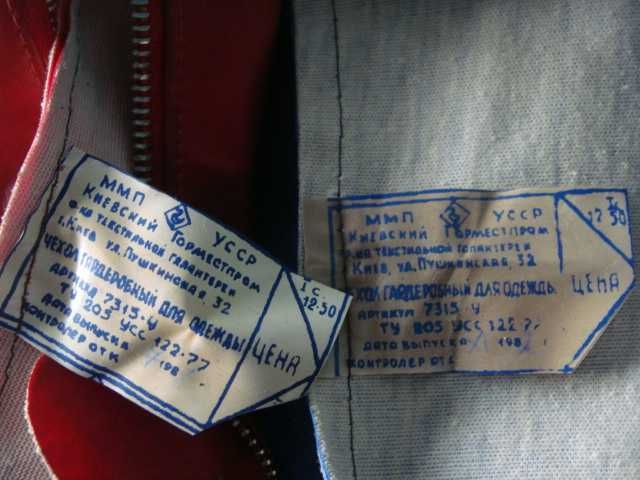 ММП УССР
КИЕВСКИЙ ГОРМЕСТПРОМ
Ф-КА ТЕКСТИЛЬНОЙ ГАЛАНТЕРЕИ
г. КИЕВ УЛ. ПУШКИНСКАЯ, 32
ЧЕХОЛ ГАРДЕРОБНЫЙ ДЛЯ ОДЕЖДЫ
АРТИКУЛ 7315-Ч
ТУ 205 УСС 122-77
ДАТА ВЫПУСКА 198
КОНТРОЛЕР ОТК
I С.
12-50
ЦЕНА
ММП УССР
КИЕВСКИЙ ГОРМЕСТПРОМ
Ф-КА ТЕКСТИЛЬНОЙ ГАЛАНТЕРЕИ
КИЕВ, УЛ. ПУШКИНСКАЯ, 32
ЧЕХОЛ ГАРДЕРОБНЫЙ ДЛЯ ОДЕЖДЫ
АРТИКУЛ 7315-Ч
ТУ 205 УСС 122-77
ДАТА ВЫПУСКА 198
КОНТРОЛЕР ОТК
I С.
12 50
ЦЕНА